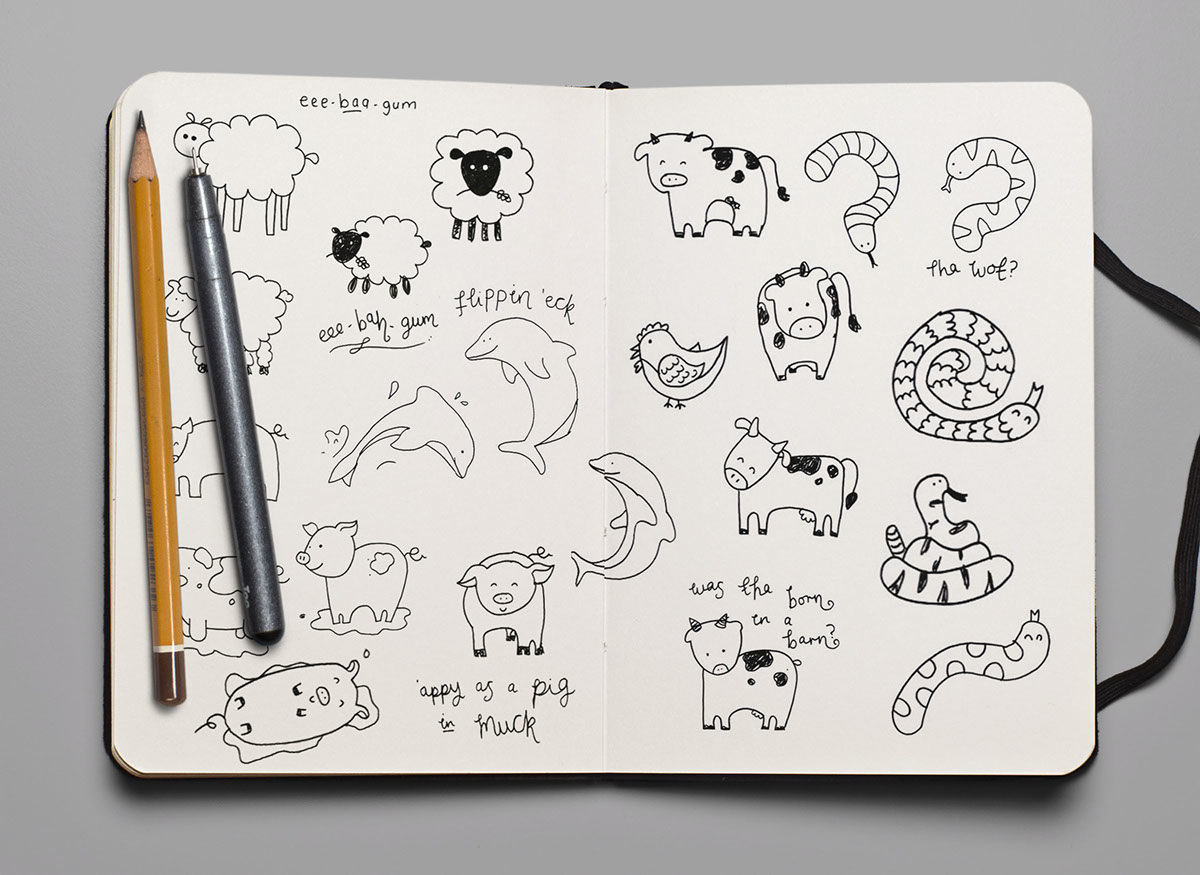 eee-baa-gum
eee-bah-gum
flippin 'eck
'appy as a pig
in muck
tha wot?
was tha born
in a
barn?